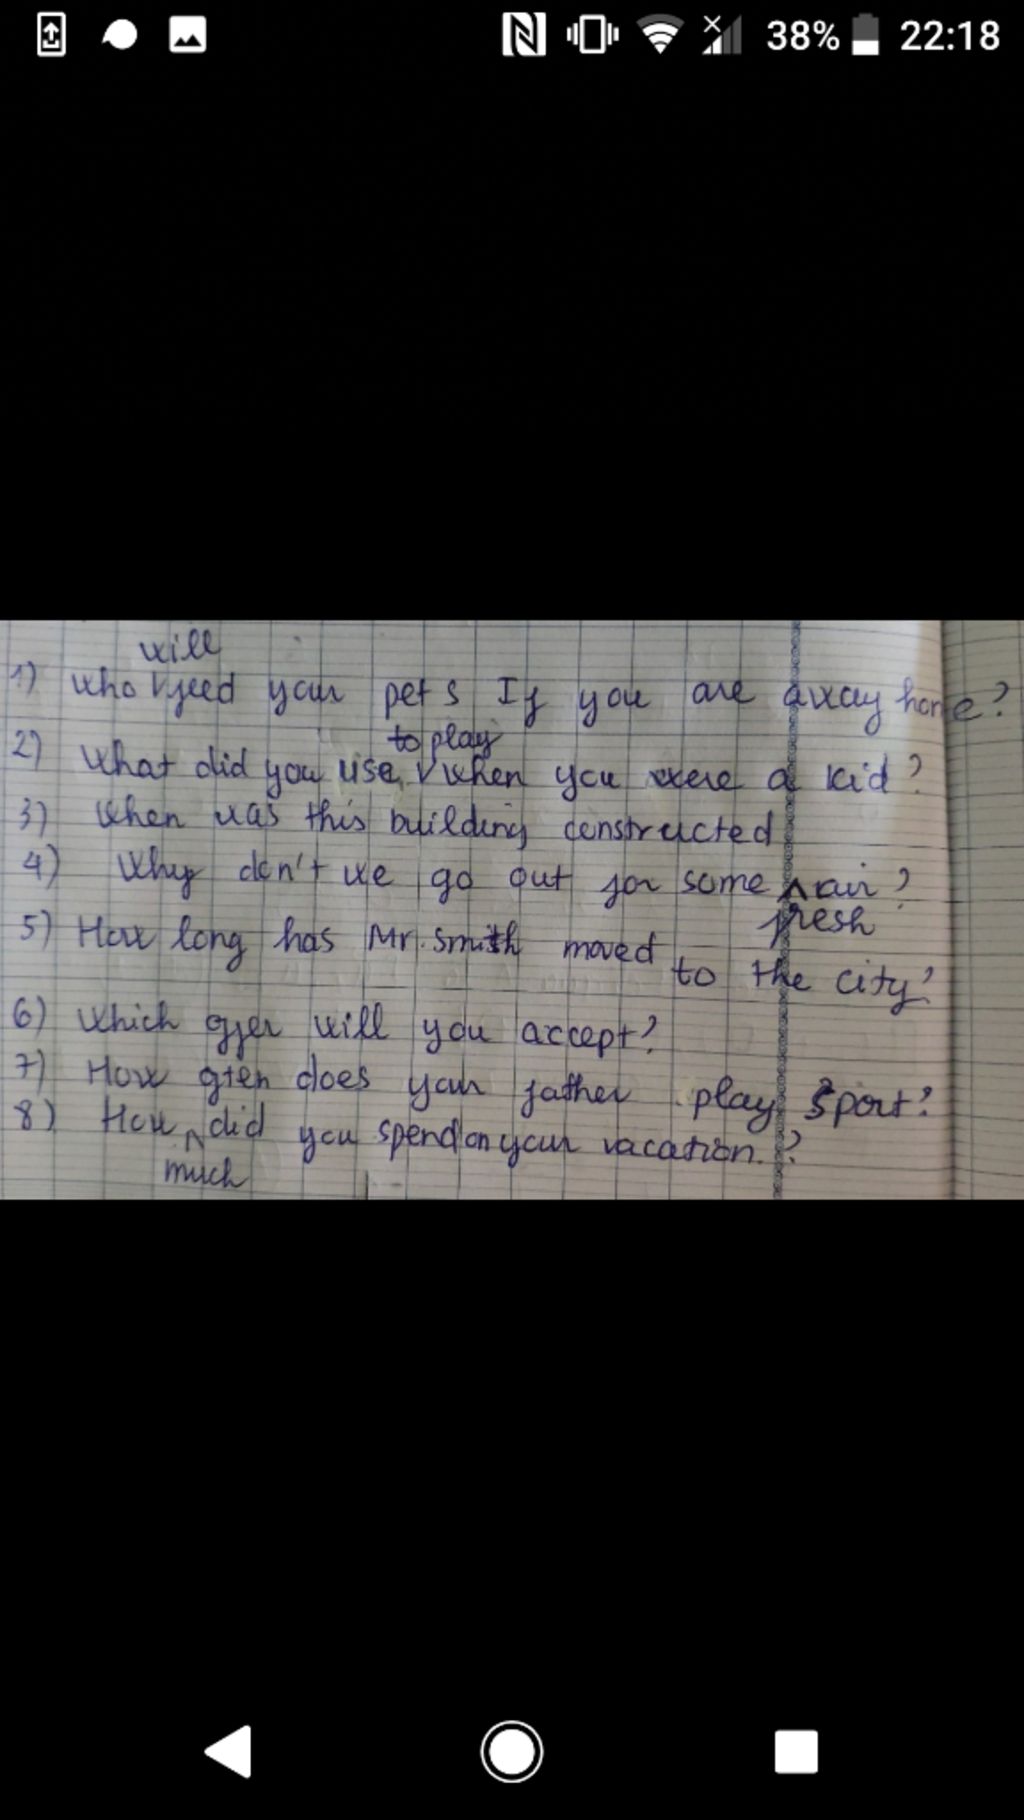 38% 22:18
will
1) Who feed your pets If you are away home?
to play
2) What did you use when you were a kid?
3) When was this building constructed
4) Why don't we go out for some air?
fresh
5) How long has Mr. Smith moved
to the city?
6) Which offer will you accept?
7) How often does your father play sport?
8) How did you spend on your vacation.?
much